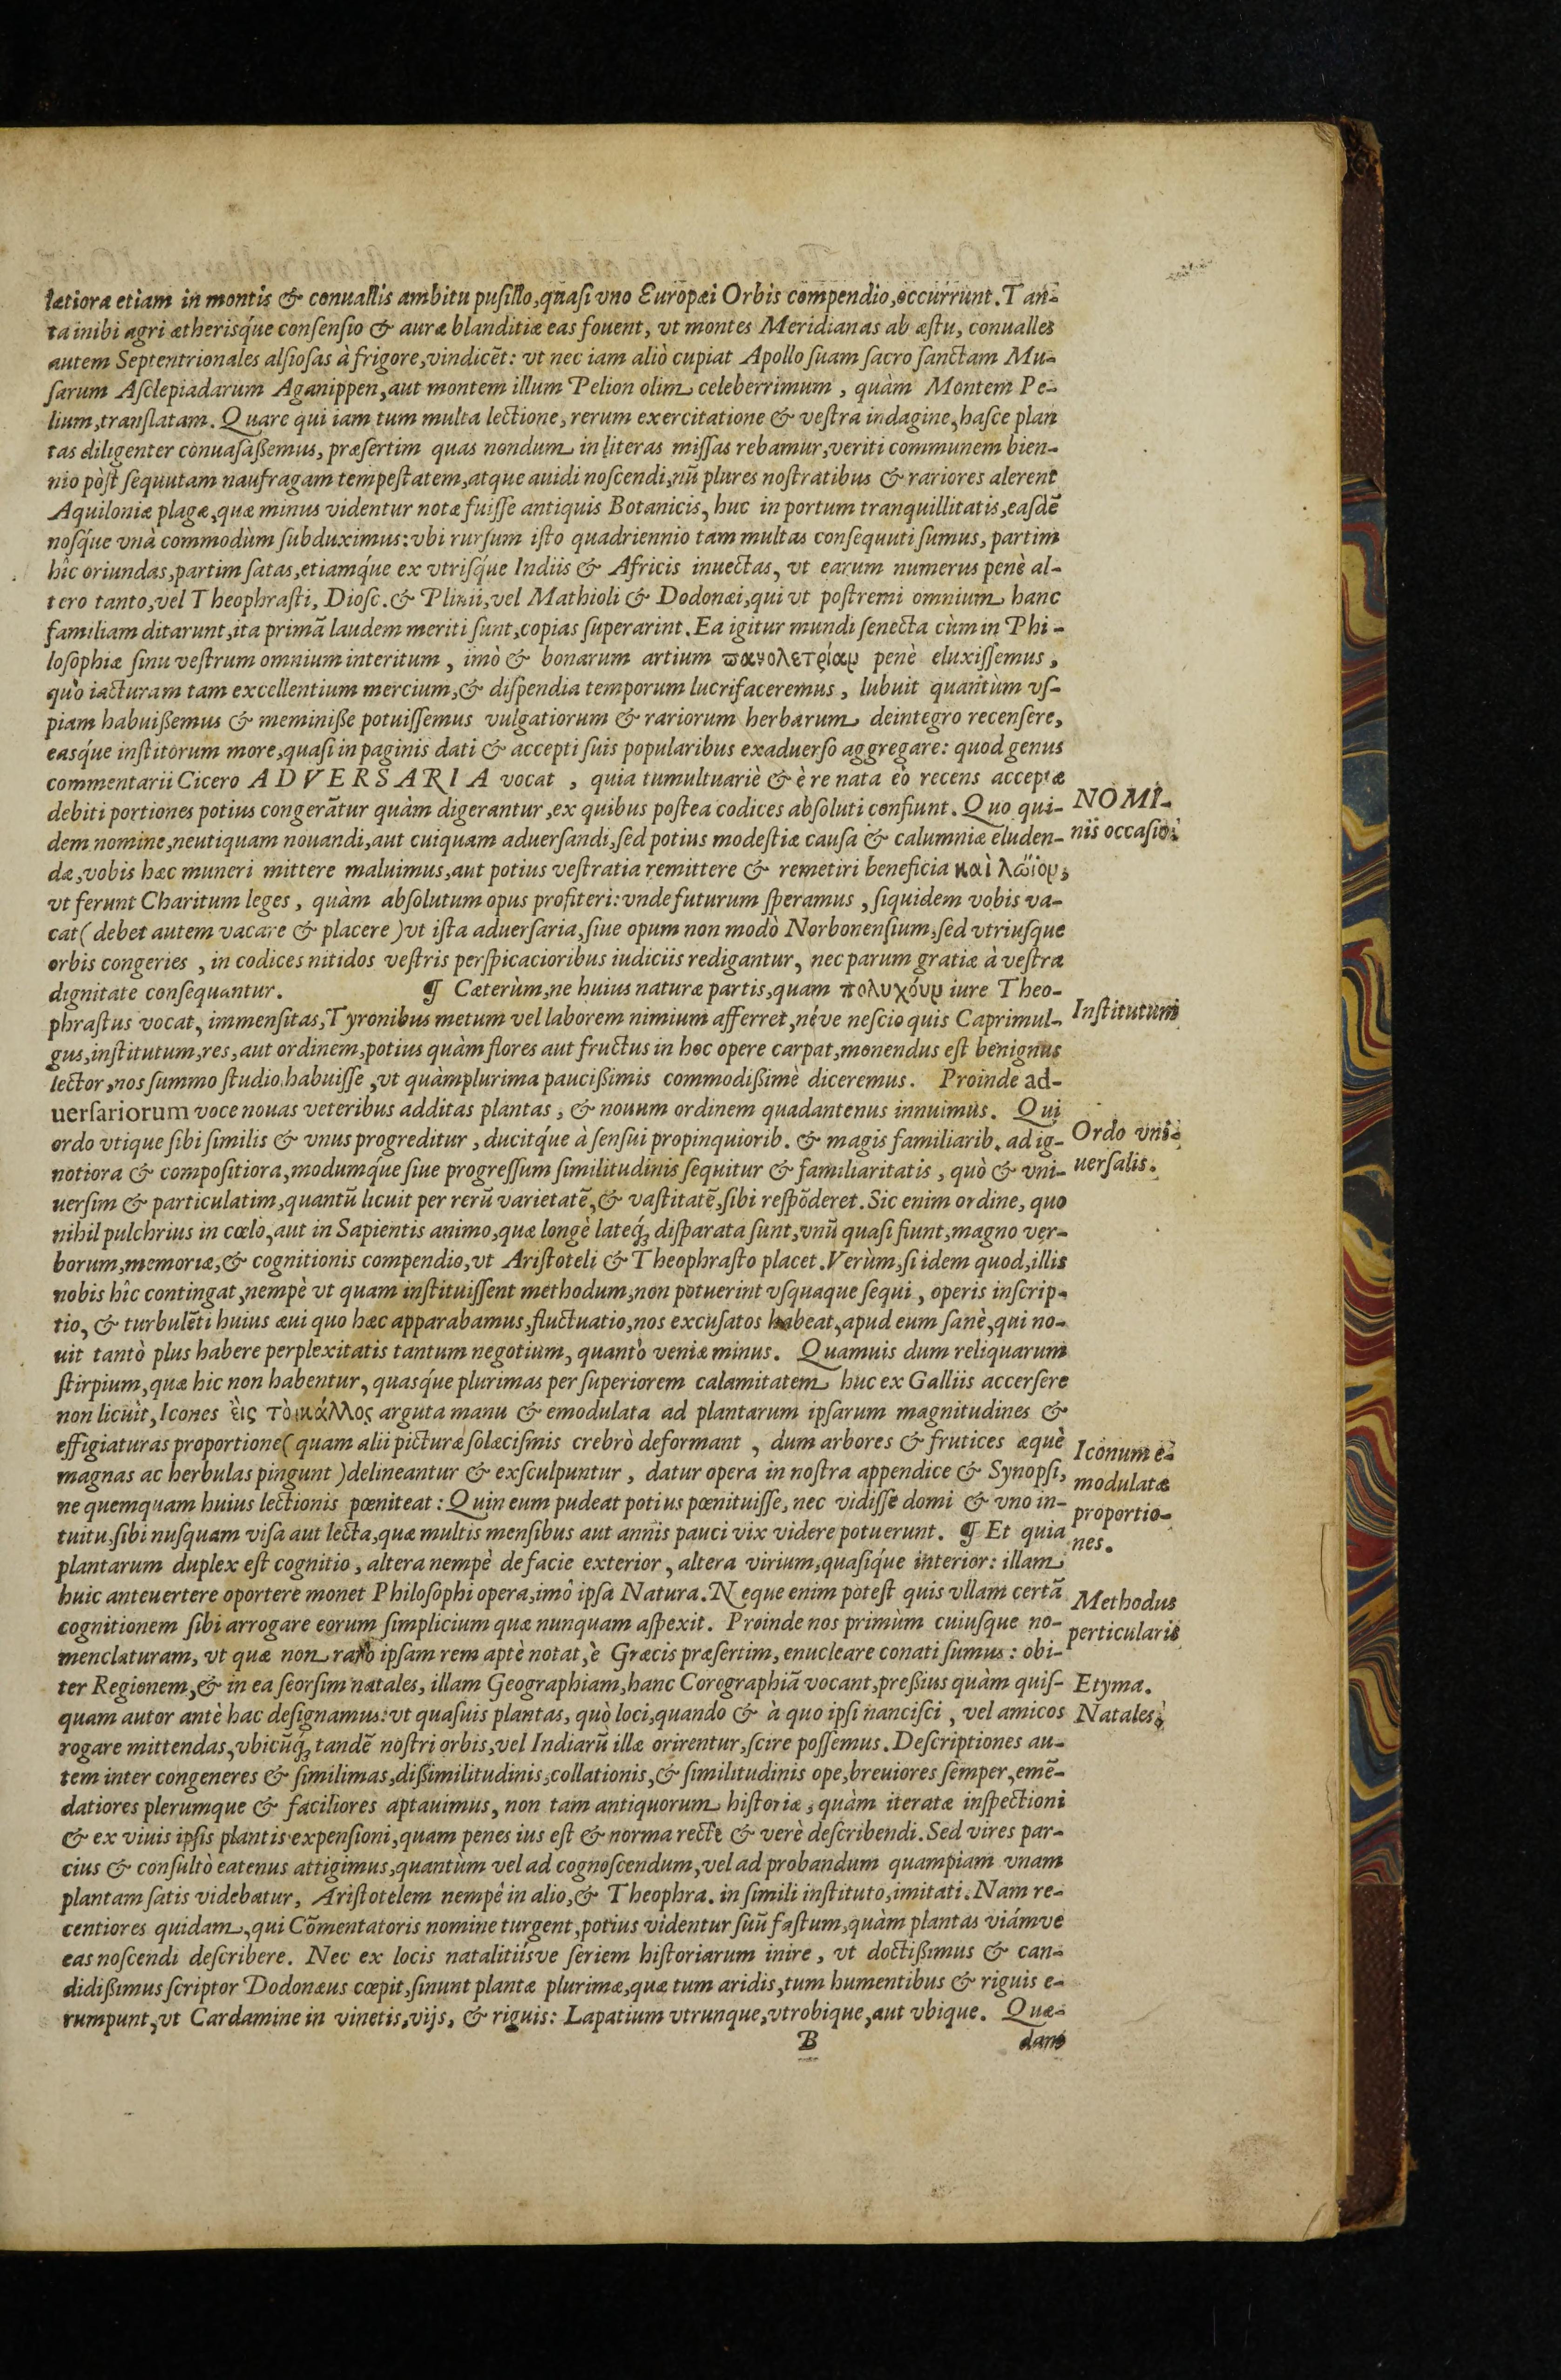 lætiora etiam in montis & conuallis ambitu pusillo, quasi vno Europæi Orbis compendio, occurrunt. Tan-
ta inibi agri ætherisq́ue consensio & auræ blanditiæ eas fouent, vt montes Meridianas ab æstu, conualles
autem Septentrionales alsiosas à frigore, vindicẽt: vt nec iam aliò cupiat Apollo suam sacro sanctam Mu-
sarum Asclepiadarum Aganippen, aut montem illum Pelion olim celeberrimum, quàm Montem Pe-
lium, translatam. Quare qui iam tum multa lectione, rerum exercitatione & vestra indagine, hasce plan
tas diligenter conuasassemus, præsertim quas nondum in literas missas rebamur, veriti communem bien-
nio pòst sequutam naufragam tempestatem, atque auidi noscendi, nũ plures nostratibus & rariores alerent
Aquiloniæ plagæ, quæ minus videntur notæ fuisse antiquis Botanicis, huc in portum tranquillitatis, easdẽ
nosq́ue vnà commodùm subduximus: vbi rursum isto quadriennio tam multas consequuti sumus, partim
hîc oriundas, partim satas, etiamq́ue ex vtrisq́ue Indiis & Africis inuectas, vt earum numerus penè al-
tero tanto, vel Theophrasti, Diosc. & Plinii, vel Mathioli & Dodonæi, qui vt postremi omnium hanc
familiam ditarunt, ita primã laudem meriti sunt, copias superarint. Ea igitur mundi senecta cùm in Phi-
losophiæ sinu vestrum omnium interitum, imò & bonarum artium πανολετρίαν penè eluxissemus,
quò iacturam tam excellentium mercium, & dispendia temporum lucrifaceremus, lubuit quantùm vs-
piam habuissemus & meminisse potuissemus vulgatiorum & rariorum herbarum deintegro recensere,
easq́ue institorum more, quasi in paginis dati & accepti suis popularibus exaduerso aggregare: quod genus
commentarii Cicero ADVERSARIA vocat, quia tumultuariè & è re nata eò recens acceptæ
debiti portiones potius congerãtur quàm digerantur, ex quibus postea codices absoluti confiunt. Quo qui-
NOMI-
dem nomine, neutiquam nouandi, aut cuiquam aduersandi, sed potius modestiæ causa & calumniæ eluden-
nis occasio.
dæ, vobis hæc muneri mittere maluimus, aut potius vestratia remittere & remetiri beneficia καὶ λώϊον,
vt ferunt Charitum leges, quàm absolutum opus profiteri: vnde futurum speramus, siquidem vobis va-
cat (debet autem vacare & placere) vt ista aduersaria, siue opum non modò Norbonensium, sed vtriusque
orbis congeries, in codices nitidos vestris perspicacioribus iudiciis redigantur, nec parum gratiæ à vestra
dignitate consequantur. ¶ Cæterùm, ne huius naturæ partis, quam πολυχόυν iure Theo-
phrastus vocat, immensitas, Tyronibus metum vel laborem nimium afferret, néve nescio quis Caprimul-
Institutum
gus, institutum, res, aut ordinem, potius quàm flores aut fructus in hoc opere carpat, monendus est benignus
lector, nos summo studio habuisse, vt quàmplurima paucissimis commodissimè diceremus. Proinde ad-
uersariorum voce nouas veteribus additas plantas, & nouum ordinem quadantenus innuimus. Qui
ordo vtique sibi similis & vnus progreditur, ducitq́ue à sensui propinquiorib. & magis familiarib. ad ig-
Ordo vni-
notiora & compositiora, modumq́ue siue progressum similitudinis sequitur & familiaritatis, quò & vni-
uersalis.
uersim & particulatim, quantũ licuit per rerũ varietatẽ, & vastitatẽ, sibi respõderet. Sic enim ordine, quo
nihil pulchrius in cœlo, aut in Sapientis animo, quæ longè lateq́; disparata sunt, vnũ quasi fiunt, magno ver-
borum, memoriæ, & cognitionis compendio, vt Aristoteli & Theophrasto placet. Verùm, si idem quod, illis
nobis hîc contingat, nempè vt quam instituissent methodum, non potuerint vsquaque sequi, operis inscrip-
tio, & turbulẽti huius æui quo hæc apparabamus, fluctuatio, nos excusatos habeat, apud eum sanè, qui no-
uit tantò plus habere perplexitatis tantum negotium, quantò veniæ minus. Quamuis dum reliquarum
stirpium, quæ hic non habentur, quasq́ue plurimas per superiorem calamitatem huc ex Galliis accersere
non licuit, Icones ἐις τὸ κάλλος arguta manu & emodulata ad plantarum ipsarum magnitudines &
effigiaturas proportione (quam alii picturæ solæcismis crebrò deformant, dum arbores & frutices æquè
Iconum e-
magnas ac herbulas pingunt) delineantur & exsculpuntur, datur opera in nostra appendice & Synopsi,
modulatæ
ne quemquam huius lectionis pœniteat: Quin eum pudeat potius pœnituisse, nec vidisse domi & vno in-
proportio-
tuitu, sibi nusquam visa aut lecta, quæ multis mensibus aut annis pauci vix videre potuerunt. ¶ Et quia
nes.
plantarum duplex est cognitio, altera nempè de facie exterior, altera virium, quasiq́ue interior: illam
huic anteuertere oportere monet Philosophi opera, imò ipsa Natura. Neque enim potest quis vllam certã
Methodus
cognitionem sibi arrogare eorum simplicium quæ nunquam aspexit. Proinde nos primùm cuiusque no-
perticularis
menclaturam, vt quæ non rarò ipsam rem aptè notat, è Græcis præsertim, enucleare conati sumus: obi-
ter Regionem, & in ea seorsim natales, illam Geographiam, hanc Corographiã vocant, pressius quàm quis-
Etyma.
quam autor antè hac designamus: vt quasuis plantas, quò loci, quando & à quo ipsi nancisci, vel amicos
Natales.
rogare mittendas, vbicũq́; tandẽ nostri orbis, vel Indiarũ illæ orirentur, scire possemus. Descriptiones au-
tem inter congeneres & similimas, dissimilitudinis, collationis, & similitudinis ope, breuiores semper, emẽ-
datiores plerumque & faciliores aptauimus, non tam antiquorum historiæ, quàm iteratæ inspectioni
& ex viuis ipsis plantis expensioni, quam penes ius est & norma rectè & verè describendi. Sed vires par-
cius & consultò eatenus attigimus, quantùm vel ad cognoscendum, vel ad probandum quampiam vnam
plantam satis videbatur, Aristotelem nempè in alio, & Theophra. in simili instituto, imitati. Nam re-
centiores quidam, qui Cõmentatoris nomine turgent, potius videntur suũ fastum, quàm plantas viámve
eas noscendi describere. Nec ex locis natalitiísve seriem historiarum inire, vt doctissimus & can-
didissimus scriptor Dodonæus cœpit, sinunt plantæ plurimæ, quæ tum aridis, tum humentibus & riguis e-
rumpunt, vt Cardamine in vinetis, vijs, & riguis: Lapatium vtrunque, vtrobique, aut vbique. Quæ-
B
dam